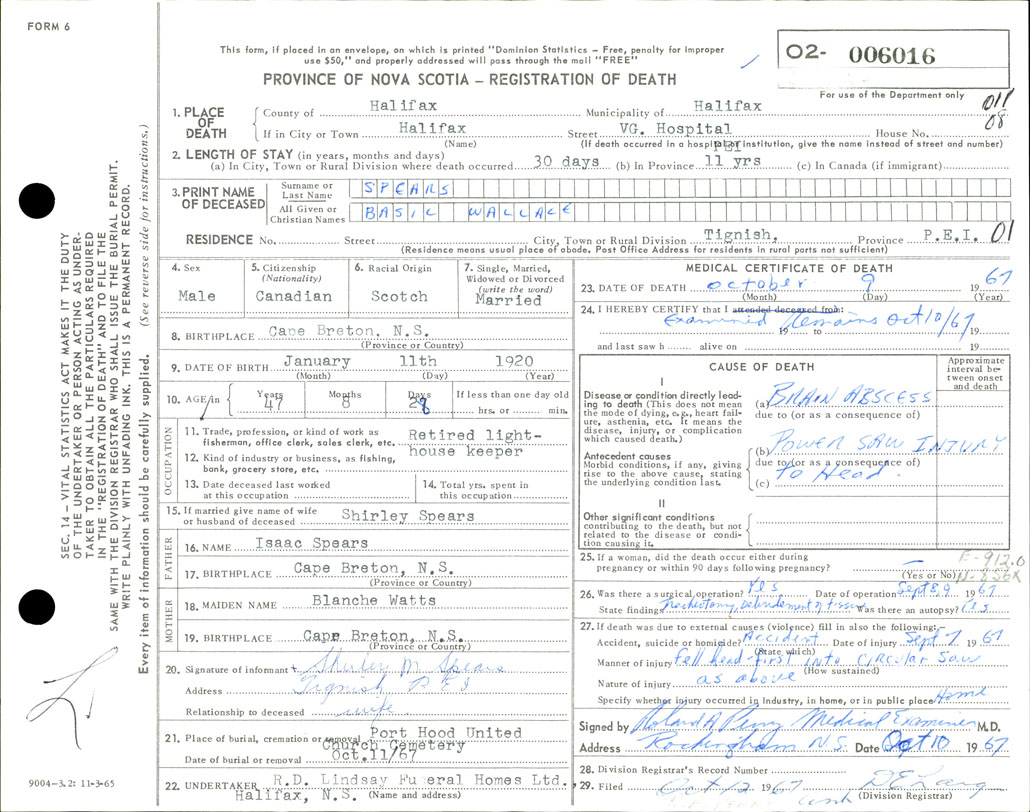 FORM 6
This form, if placed in an envelope, on which is printed "Dominion Statistics – Free, penalty for improper
use $50," and properly addressed will pass through the mail "FREE"
O2- 006016
PROVINCE OF NOVA SCOTIA – REGISTRATION OF DEATH
For use of the Department only
011
08
1. PLACE OF DEATH
County of Halifax Municipality of Halifax
If in City or Town Halifax Street VG. Hospital House No.
(Name) (If death occurred in a hospital or institution, give the name instead of street and number)
2. LENGTH OF STAY (in years, months and days)
(a) In City, Town or Rural Division where death occurred 30 days (b) In Province PEI 11 yrs (c) In Canada (if immigrant)
3. PRINT NAME OF DECEASED
Surname or Last Name SPEARS
All Given or Christian Names BASIL WALLACE
RESIDENCE No. Street City, Town or Rural Division Tignish, Province P.E.I. 01
(Residence means usual place of abode. Post Office Address for residents in rural parts not sufficient)
4. Sex
Male
5. Citizenship
(Nationality)
Canadian
6. Racial Origin
Scotch
7. Single, Married,
Widowed or Divorced
(write the word)
Married
8. BIRTHPLACE Cape Breton, N.S.
(Province or Country)
9. DATE OF BIRTH January 11th 1920
(Month) (Day) (Year)
10. AGE in Years 47 Months 8 Days 28 If less than one day old
hrs. or min.
OCCUPATION
11. Trade, profession, or kind of work as
fisherman, office clerk, sales clerk, etc. Retired light-
house keeper
12. Kind of industry or business, as fishing,
bank, grocery store, etc.
13. Date deceased last worked
at this occupation
14. Total yrs. spent in
this occupation
15. If married give name of wife
or husband of deceased Shirley Spears
FATHER
16. NAME Isaac Spears
17. BIRTHPLACE Cape Breton, N.S.
(Province or Country)
MOTHER
18. MAIDEN NAME Blanche Watts
19. BIRTHPLACE Cape Breton, N.S.
(Province or Country)
20. Signature of informant Shirley M Spears
Address Tignish P E I
Relationship to deceased wife
21. Place of burial, cremation or removal Port Hood United
Church Cemetery
Date of burial or removal Oct.11/67
22. UNDERTAKER R.D. Lindsay Funeral Homes Ltd.
Halifax, N.S. (Name and address)
MEDICAL CERTIFICATE OF DEATH
23. DATE OF DEATH October 9 1967
(Month) (Day) (Year)
24. I HEREBY CERTIFY that I attended deceased from:
Examined Remains Oct 10/67
19 to 19
and last saw h alive on 19
CAUSE OF DEATH
Approximate
interval be-
tween onset
and death
I
Disease or condition directly lead-
ing to death (This does not mean
the mode of dying, e.g., heart fail-
ure, asthenia, etc. It means the
disease, injury, or complication
which caused death.)
(a) BRAIN ABSCESS
due to (or as a consequence of)
Antecedent causes
Morbid conditions, if any, giving
rise to the above cause, stating
the underlying condition last.
(b) POWER SAW INJURY
due to (or as a consequence of)
TO HEAD.
(c)
II
Other significant conditions
contributing to the death, but not
related to the disease or condi-
tion causing it.
25. If a woman, did the death occur either during
pregnancy or within 90 days following pregnancy?
(Yes or No)
E-912.0
N-856X
26. Was there a surgical operation? Yes Date of operation Sept 8,9 1967
State findings debridement of tissue Was there an autopsy? Yes
27. If death was due to external causes (violence) fill in also the following:–
Accident, suicide or homicide? Accident Date of injury Sept 7 1967
(State which)
Manner of injury Fell head-first into circular saw
(How sustained)
Nature of injury as above
Specify whether injury occurred in Industry, in home, or in public place Home
Signed by Roland A Perry Medical Examiner M.D.
Address Rockingham N.S. Date Oct 10 1967
28. Division Registrar's Record Number
29. Filed Oct 12 1967 D E Lang
(Division Registrar)
SEC. 14 – VITAL STATISTICS ACT MAKES IT THE DUTY
OF THE UNDERTAKER OR PERSON ACTING AS UNDER-
TAKER TO OBTAIN ALL THE PARTICULARS REQUIRED
IN THE "REGISTRATION OF DEATH" AND TO FILE THE
SAME WITH THE DIVISION REGISTRAR WHO SHALL ISSUE THE BURIAL PERMIT.
WRITE PLAINLY WITH UNFADING INK. THIS IS A PERMANENT RECORD.
Every item of information should be carefully supplied. (See reverse side for instructions.)
9004-3.2: 11-3-65